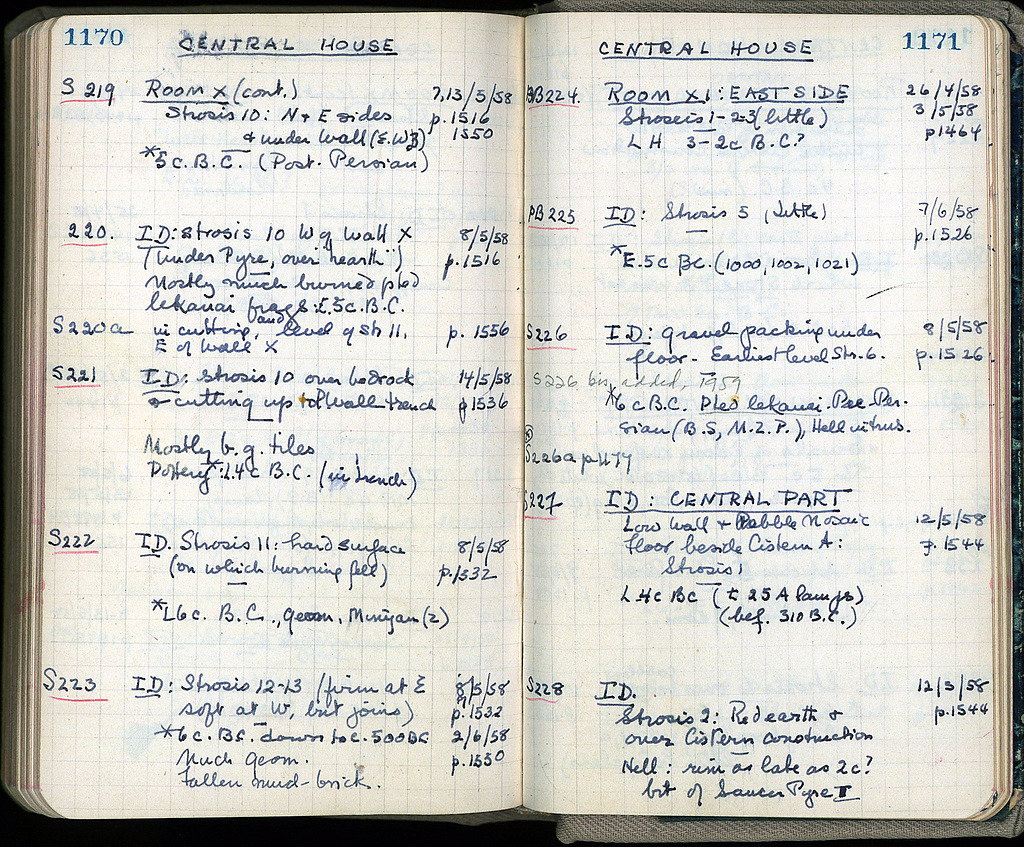 1170
CENTRAL HOUSE
S 219 Room X (cont.) 7,13/5/58
Strosis 10: N + E sides p. 1516
+ under Wall (E. WB) 1550
*5 c. B.C. (Post. Persian)
220. ID: strosis 10 W of Wall X 8/5/58
(under Pyre, over "hearth") p. 1516
Mostly much burned pted
lekanai frags: E.5c. B.C.
S220a in cutting, and level of str 11, p. 1556
E of Wall X
S221 ID: Strosis 10 over bedrock 14/5/58
+ cutting up to Wall trench p 1536
Mostly b. g. tiles,
Pottery *L4c B.C. (in trench)
S222 ID. Strosis 11: hard surface 8/5/58
(on which burning fell) p. 1532
*L6c. B.C., geom, Minyan (2)
S223 ID: Strosis 12-13 (firm at E 8/5/58
soft at W, but joins) p. 1532
*6c. BC. down to c. 500 BC 2/6/58
Much geom. p. 1550
Fallen mud-brick.
1171
CENTRAL HOUSE
PB224. ROOM X1: EAST SIDE 26/4/58
Stroseis 1-2-3 (little) 3/5/58
LH 3-2c B.C.? p1464
PB225 ID: Strosis 5 (little) 7/6/58
p. 1526
*E. 5c BC. (1000, 1002, 1021)
S226 ID: gravel packing under 8/5/58
floor - Earliest level Str. 6. p. 1526
S226 bis, added, 1959
*6 c B.C. Pted lekanai. Pre-Per-
sian (B.S, M.Z.P.), Hell intrus.
S226a p 1177
S227 ID: CENTRAL PART
Low wall + Pebble Mosaic 12/5/58
floor beside Cistern A: p. 1544
Strosis 1
L 4c BC (t 25 A lamps)
(bef. 310 B.C.)
S228 ID. 12/5/58
Strosis 2: Red earth + p. 1544
over Cistern construction
Hell: rim as late as 2c?
bit of Saucer Pyre I